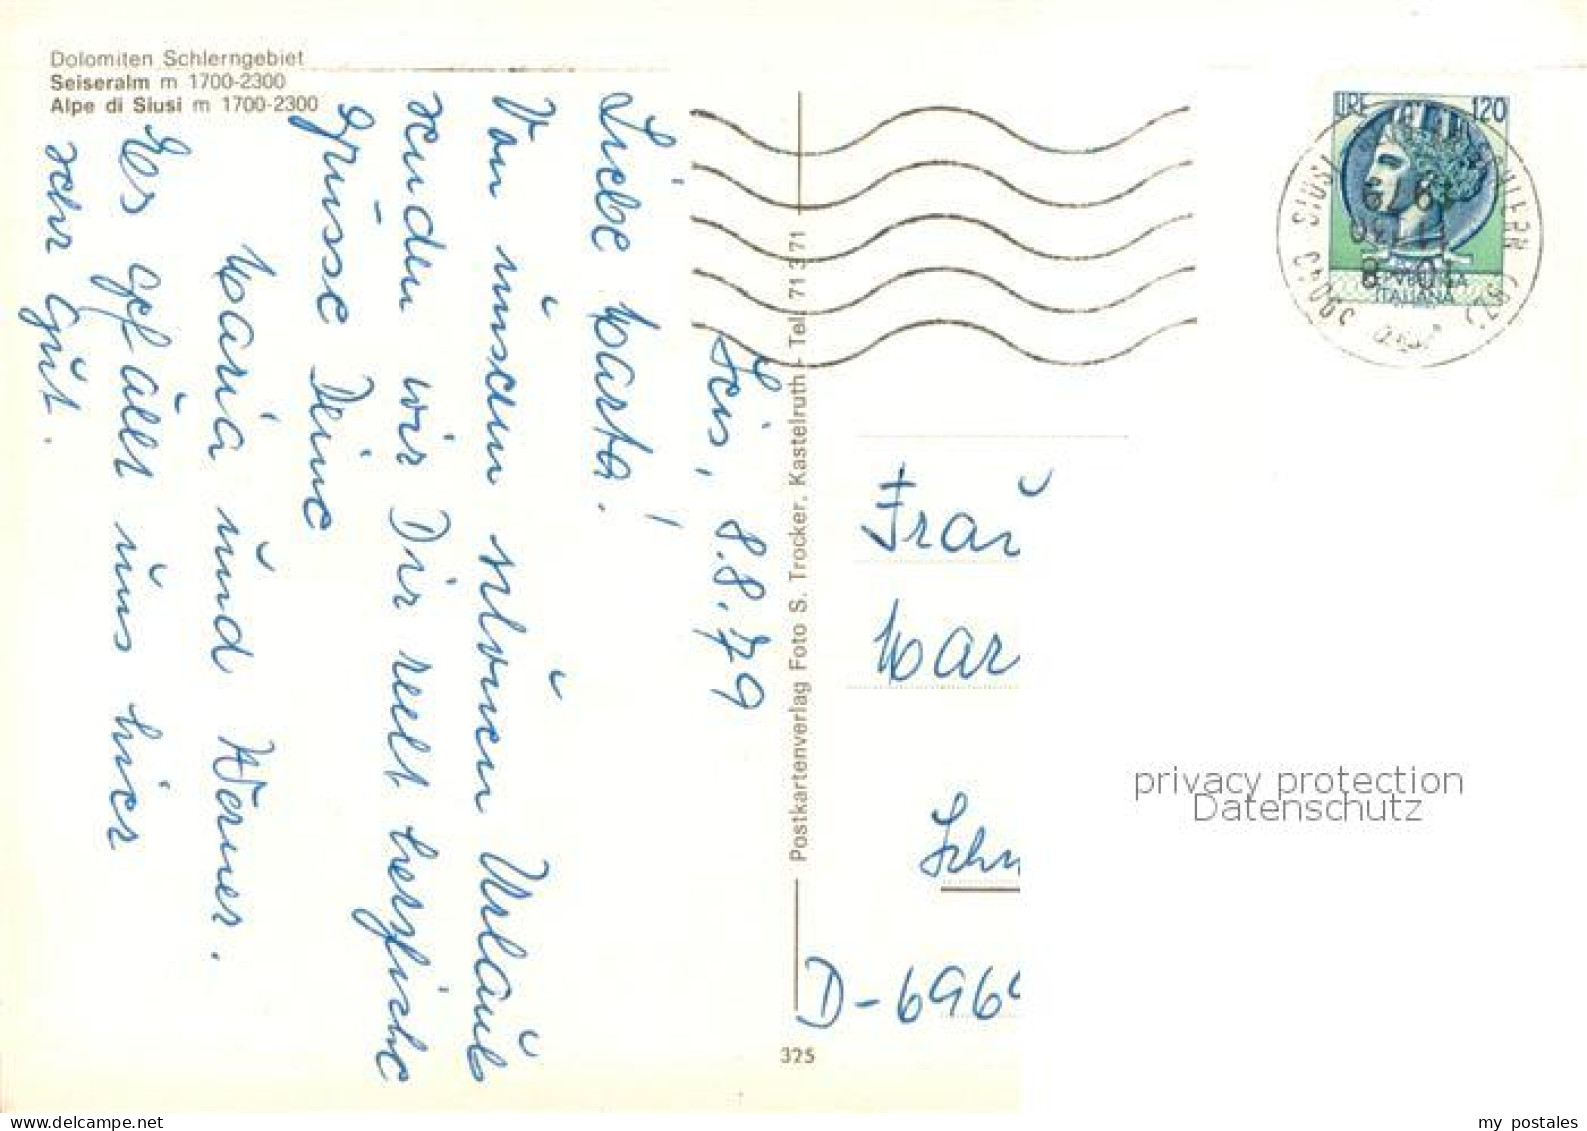 Dolomiten Schlerngebiet
Seiseralm m 1700-2300
Alpe di Siusi m 1700-2300
Seis, 8.8.79
Liebe Marta!
Von unserem schönen Urlaub
senden wir Dir recht herzliche
Grüsse Deine
Maria und Werner.
Es gefällt uns hier
sehr gut.
Postkartenverlag Foto S. Trocker, Kastelruth - Tel. 71 3 71
325
LIRE 120
REPVBBLICA
ITALIANA
39040 SIUSI
Frau
Mar
Schn
D-696
privacy protection
Datenschutz
my postales